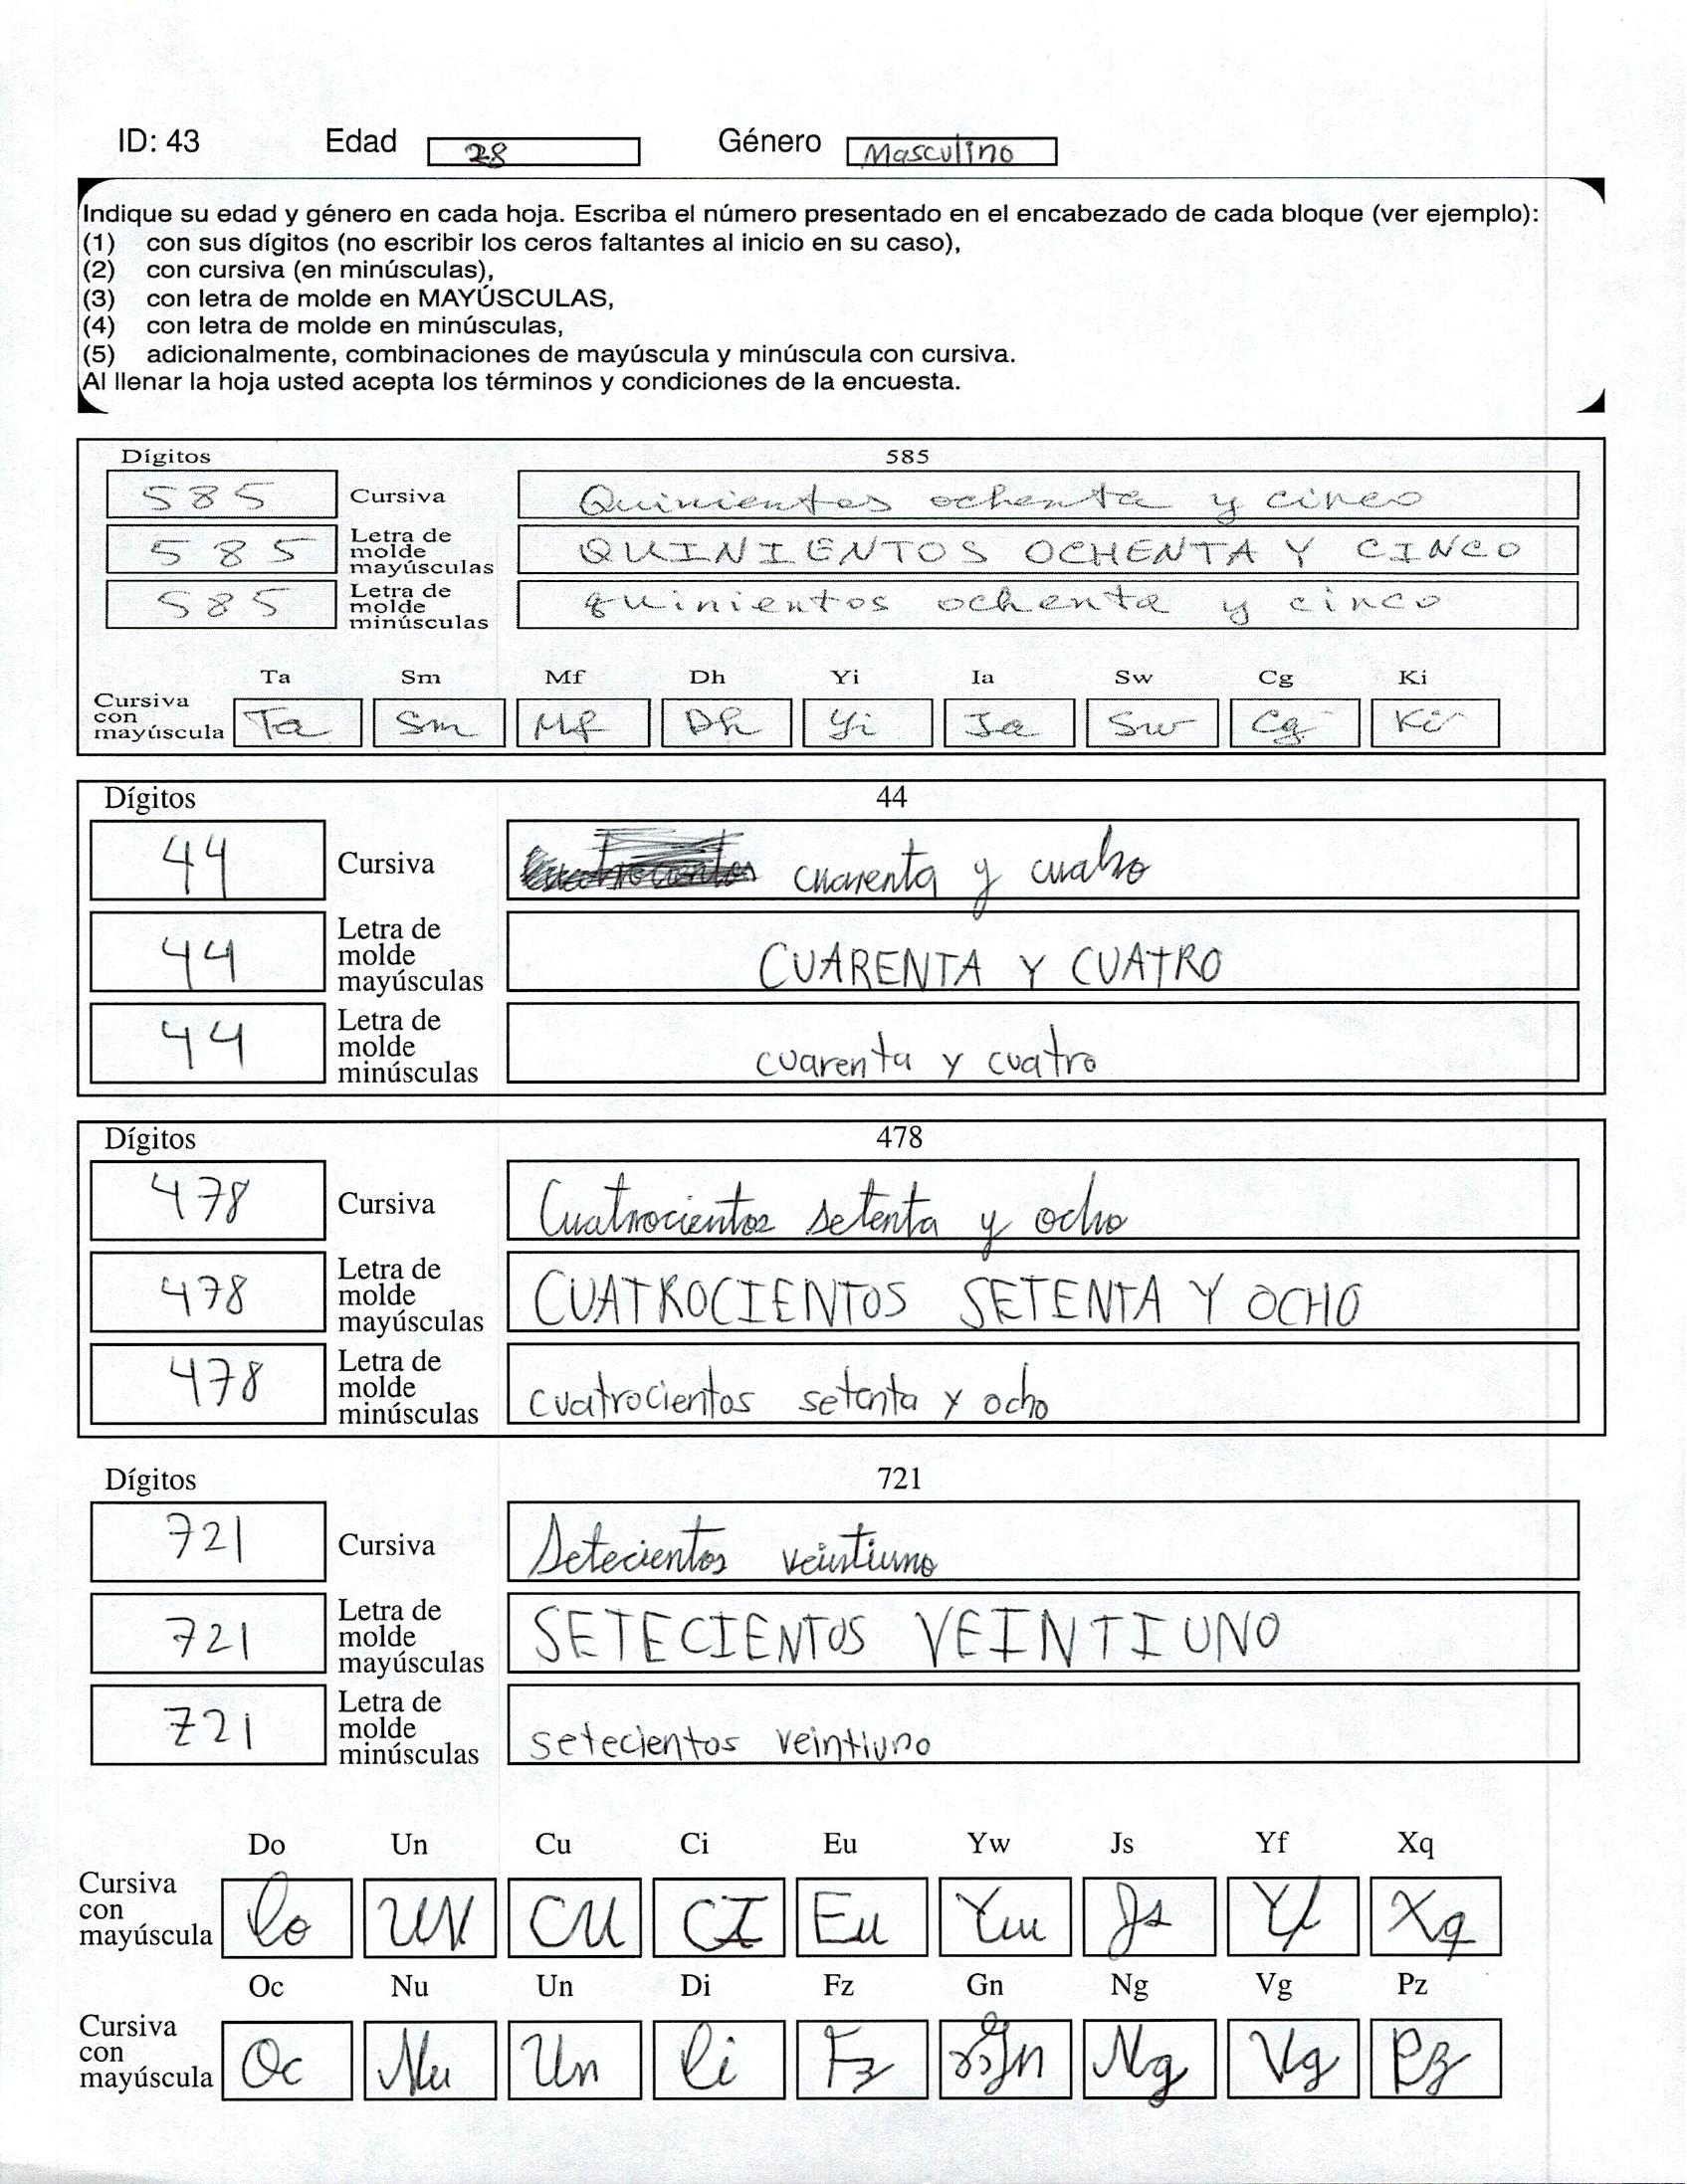 ID: 43 Edad 28 Género Masculino
Indique su edad y género en cada hoja. Escriba el número presentado en el encabezado de cada bloque (ver ejemplo):
(1) con sus dígitos (no escribir los ceros faltantes al inicio en su caso),
(2) con cursiva (en minúsculas),
(3) con letra de molde en MAYÚSCULAS,
(4) con letra de molde en minúsculas,
(5) adicionalmente, combinaciones de mayúscula y minúscula con cursiva.
Al llenar la hoja usted acepta los términos y condiciones de la encuesta.
Dígitos 585
585 Cursiva Quinientos ochenta y cinco
585 Letra de molde mayúsculas QUINIENTOS OCHENTA Y CINCO
585 Letra de molde minúsculas quinientos ochenta y cinco
Ta Sm Mf Dh Yi Ia Sw Cg Ki
Cursiva con mayúscula Ta Sm Mf Dh Yi Ia Sw Cg Ki
Dígitos 44
44 Cursiva cuarenta y cuatro
44 Letra de molde mayúsculas CUARENTA Y CUATRO
44 Letra de molde minúsculas cuarenta y cuatro
Dígitos 478
478 Cursiva Cuatrocientos setenta y ocho
478 Letra de molde mayúsculas CUATROCIENTOS SETENTA Y OCHO
478 Letra de molde minúsculas cuatrocientos setenta y ocho
Dígitos 721
721 Cursiva Setecientos veintiuno
721 Letra de molde mayúsculas SETECIENTOS VEINTIUNO
721 Letra de molde minúsculas setecientos veintiuno
Do Un Cu Ci Eu Yw Js Yf Xq
Cursiva con mayúscula Do UN CU CI Eu Yw Js Yf Xq
Oc Nu Un Di Fz Gn Ng Vg Pz
Cursiva con mayúscula Oc Nu Un Di Fz Gn Ng Vg Pz